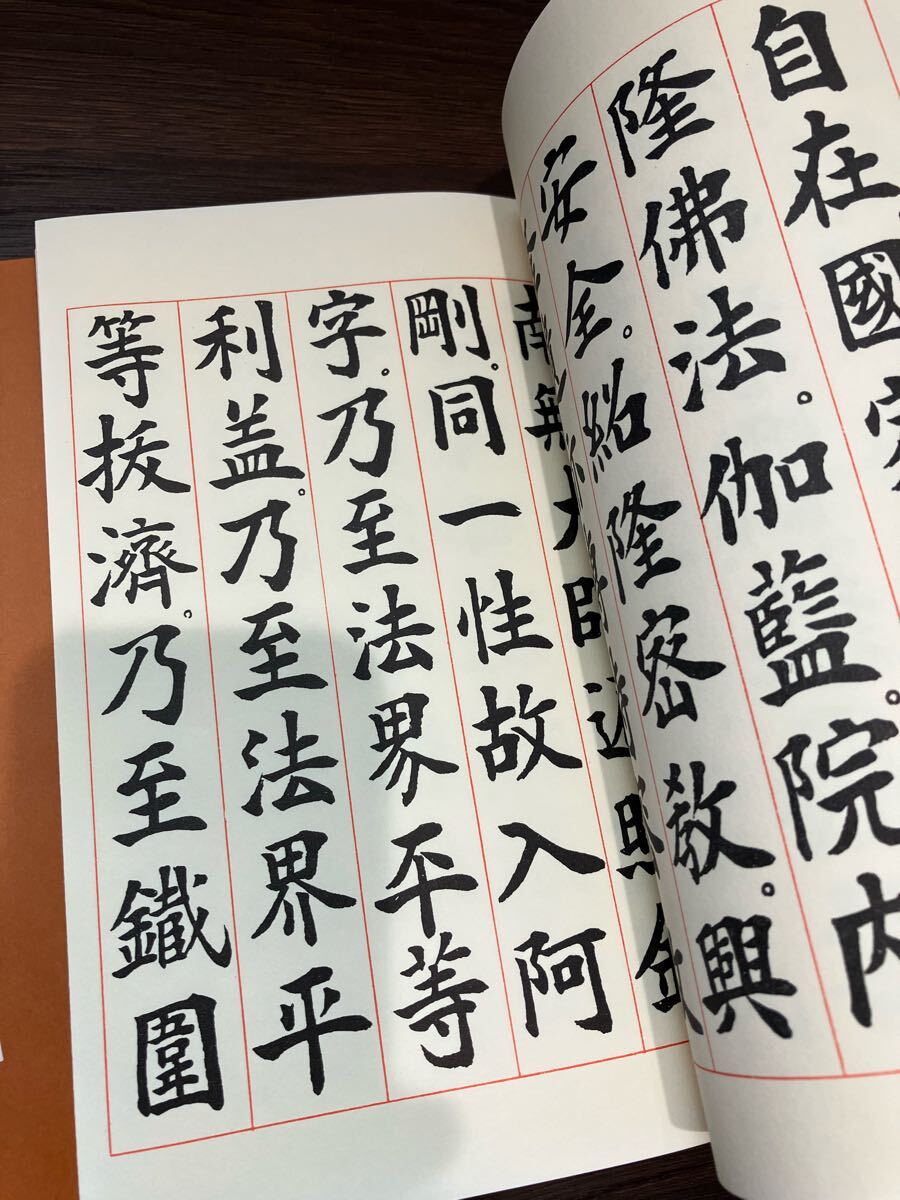 自在國家
隆佛法。伽藍。院内
安全。紹隆密教。興
南無大師遍照金
剛。同一性故入阿
字。乃至法界平等
利益。乃至法界平
等拔濟。乃至鐵圍